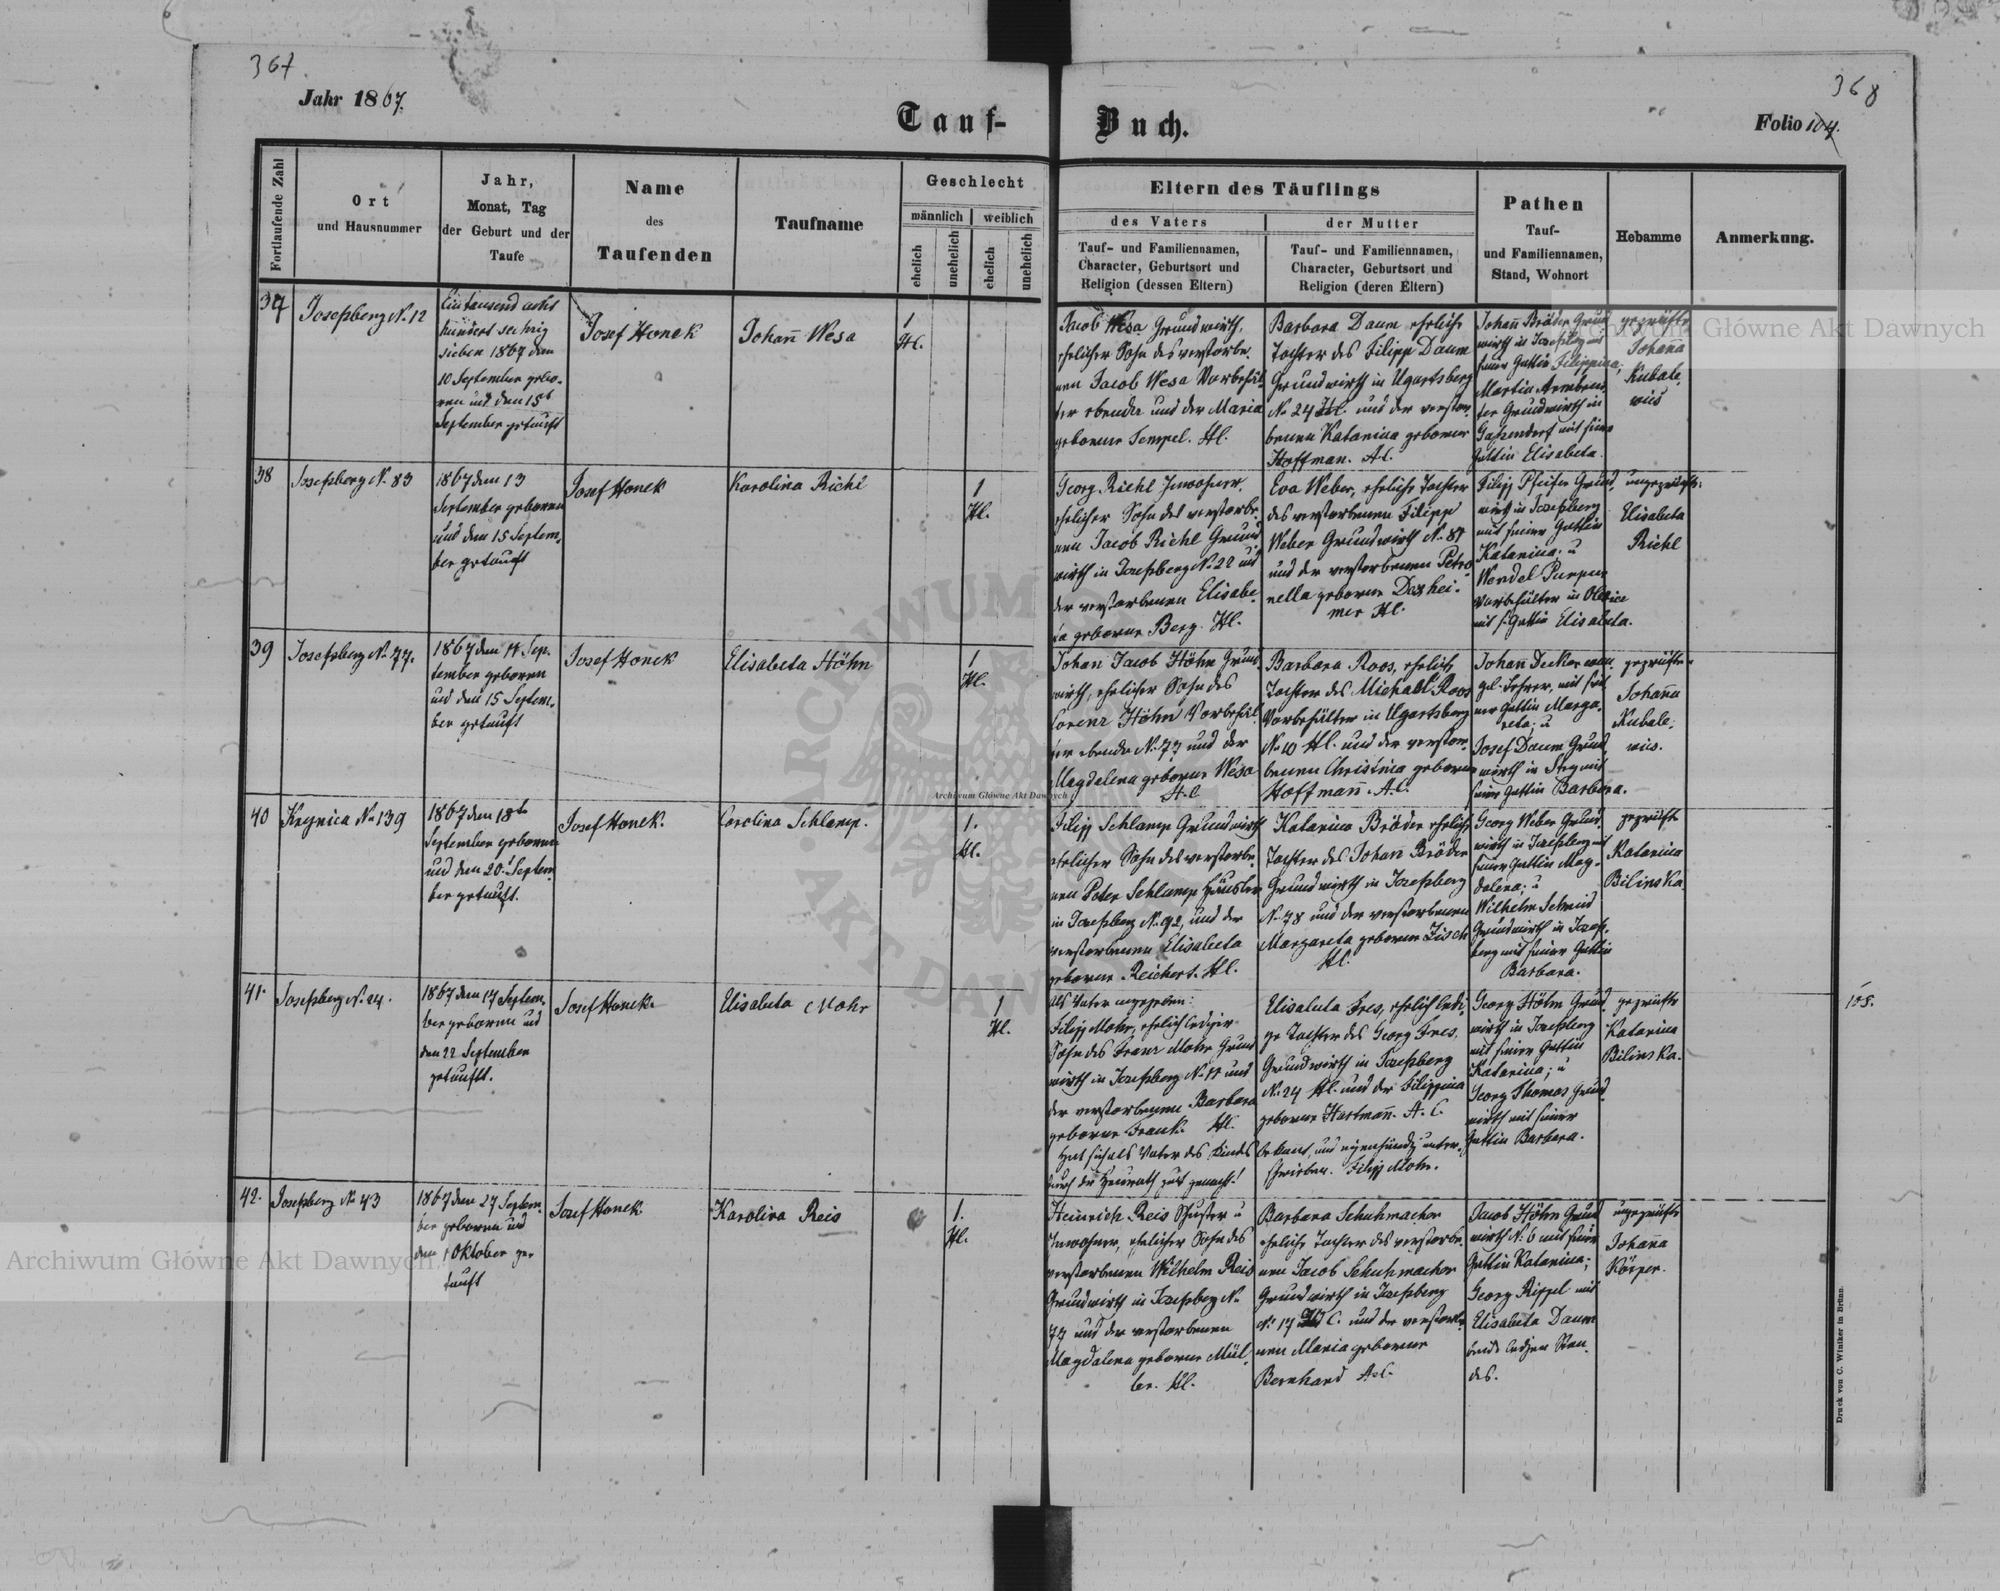 367
368
Jahr 1867.
Tauf-
Buch.
Folio 104.
Fortlaufende Zahl
Ort
und Hausnummer
Jahr,
Monat, Tag
der Geburt und der
Taufe
Name
des
Taufenden
Taufname
Geschlecht
männlich
weiblich
ehelich
unehelich
ehelich
unehelich
Eltern des Täuflings
des Vaters
Tauf- und Familiennamen,
Character, Geburtsort und
Religion (dessen Eltern)
der Mutter
Tauf- und Familiennamen,
Character, Geburtsort und
Religion (deren Eltern)
Pathen
Tauf-
und Familiennamen,
Stand, Wohnort
Hebamme
Anmerkung.
37
Josefsberg N. 12
Eintausend acht
hundert sechzig
sieben 1867 den
10 September gebo-
ren und den 15t
September getauft
Josef Honek
Johann Wesa
1
Hl.
Jacob Wesa Grundwirth,
ehelicher Sohn des verstorbe-
nen Jacob Wesa Vorbehäl-
ter ebenda und der Maria
geborene Tempel. Hl.
Barbara Daum eheliche
Tochter des Filipp Daum
Grundwirth in Ugartsberg
N. 24 Hl. und der verstor-
benen Katarina geborene
Hoffman. A.C.
Johann Bröder Grund
wirth in Josefsberg mit
seiner Gattin Filippina;
Martin Armbrus
ter Grundwirth in
Gassendorf mit seiner
Gattin Elisabeta.
geprüfte
Johanna
Kubale-
wis
38
Josefsberg N. 83
1867 den 13
September geboren
und den 15 Septem-
ber getauft
Josef Honek
Karolina Richl
1
Hl.
Georg Richl Inwohner,
ehelicher Sohn des verstorbe-
nen Jacob Richl Grund
wirth in Josefsberg N. 22 und
der verstorbenen Elisabe-
ta geborne Berg. Hl.
Eva Weber, eheliche Tochter
des verstorbenen Filipp
Weber Grundwirth N. 87
und der verstorbenen Petro
nella geborne Daxhei-
mer Hl.
Filipp Pfeifer Grund-
wirth in Josefsberg
mit seiner Gattin
Katarina; u
Wendel Purpur
Vorbehälter in
mit s. Gattin Elisabeta.
ungeprüfte
Elisabeta
Richl
39
Josefsberg N. 77.
1867 den 11 Sep-
tember geboren
und den 15 Septem-
ber getauft
Josef Honek
Elisabeta Höhn
1
Hl.
Johan Jacob Höhn Grund
wirth, ehelicher Sohn des
Lorenz Höhn Vorbehäl
ter ebenda N. 77 und der
Magdalena geborne Wesa
H.C.
Barbara Roos, eheliche
Tochter des Michael Roos
Vorbehälter in Ugartsberg
N. 10 Hl. und der verstor-
benen Christina geborne
Hoffmann A.C.
Johann Decker evan
gel. Lehrer, mit sei
ner Gattin Marga-
reta; u
Josef Daum Grund
wirth in Steg mit
seiner Gattin Barbara.
geprüfte
Johanna
Kubale-
wis.
40
Krynica N. 139
1867 den 18t
September geboren
und den 20t Septem-
ber getauft.
Josef Honek.
Carolina Schlamp.
1.
Hl.
Filipp Schlamp Grundwirth
ehelicher Sohn des verstorbe-
nen Peter Schlamp Häusler
in Josefsberg N. 92, und der
verstorbenen Elisabeta
geborne Reichert. Hl.
Katarina Bröder eheliche
Tochter des Johann Bröder
Grundwirth in Josefsberg
N. 78 und der verstorbenen
Margareta geborene Fisch
Hl.
Georg Weber Grund-
wirth in Josefsberg mit
seiner Gattin Mag-
dalena; u
Wilhelm Schmid
Grundwirth in Josefs-
berg mit seiner Gattin
Barbara.
geprüfte
Katarina
Bilinska
41.
Josefsberg N. 24.
1867 den 17 Septem-
ber geboren und
den 22 September
getauft.
Josef Honek.
Elisabeta Mohr
1
Hl.
Als Vater angegeben:
Filipp Mohr, ehelich lediger
Sohn des Franz Mohr Grund
wirth in Josefsberg N. 11 und
der verstorbenen Barbara
geborne Frank. Hl.
Hat sich als Vater des Kindes
Elisabeta Fres, ehelich ledi-
ge Tochter des Georg Fres,
Grundwirth in Josefsberg
N. 24 Hl. und der Filippina
geborne Hartmann. A.C.
bekant, und eigenhändig unter-
schrieben. Filipp Mohr.
Georg Höhn Grund-
wirth in Josefsberg
mit seiner Gattin
Katarina; u
Georg Thomas Grund-
wirth mit seiner
Gattin Barbara.
geprüfte
Katarina
Bilinska.
105.
42.
Josefsberg N. 43
1867 den 27 Septem-
ber geboren und
den 1 Oktober ge-
tauft
Josef Honek
Karolina Reis
1.
Hl.
Heinrich Reis Schuster u
Inwohner, ehelicher Sohn des
verstorbenen Wilhelm Reis
Grundwirth in Josefsberg N.
77 und der verstorbenen
Magdalena geborne Mül-
ler. Hl.
Barbara Schuhmacher
eheliche Tochter des verstorbe-
nen Jacob Schuhmacher
Grundwirth in Josefsberg
N. 17 und der verstorbe-
nen Maria geborne
Bernhard A.C.
Jacob Höhn Grund
wirth N. 6 mit seiner
Gattin Katarina;
Georg Rippel mit
Elisabeta Daum
beide ledigen Stan-
des.
ungeprüfte
Johanna
Körper.
Druck von C. Winiker in Brünn.
Archiwum Główne Akt Dawnych
Archiwum Główne Akt Dawnych
Archiwum Główne Akt Dawnych
ARCHIWUM
AKT DAW